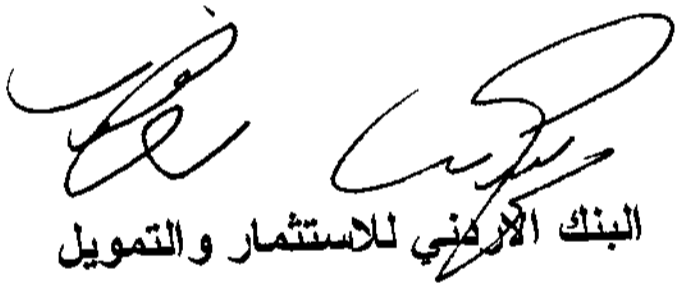 البنك الاردني للاستثمار والتمويل